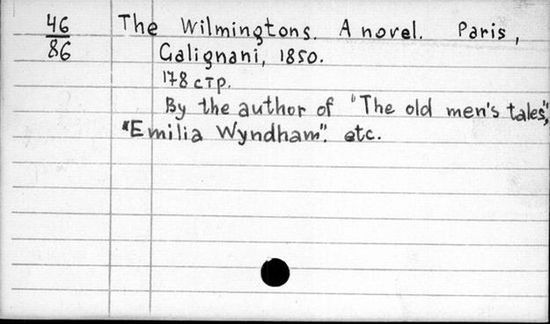 46 The Wilmingtons. A novel. Paris,
86 Galignani, 1850.
178 стр.
By the author of "The old men's tales",
"Emilia Wyndham". etc.